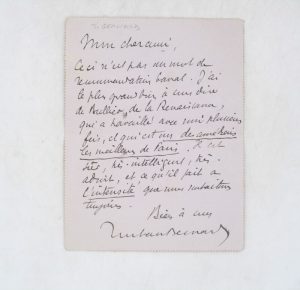 Mon cher ami,
Ceci n'est pas un mot de
recommandation banal. J'ai
le plus grand bien à vous dire
de Bullier, de la Renaissance,
qui a travaillé avec moi plusieurs
fois, et qui est un des
les meilleurs de Paris. Il est
très intelligent, très
adroit, et ce qu'il fait a
l'intensité que nous
toujours.
Bien à vous
Tristan Bernard